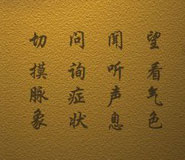 望看气色
闻听声息
问询症状
切摸脉象